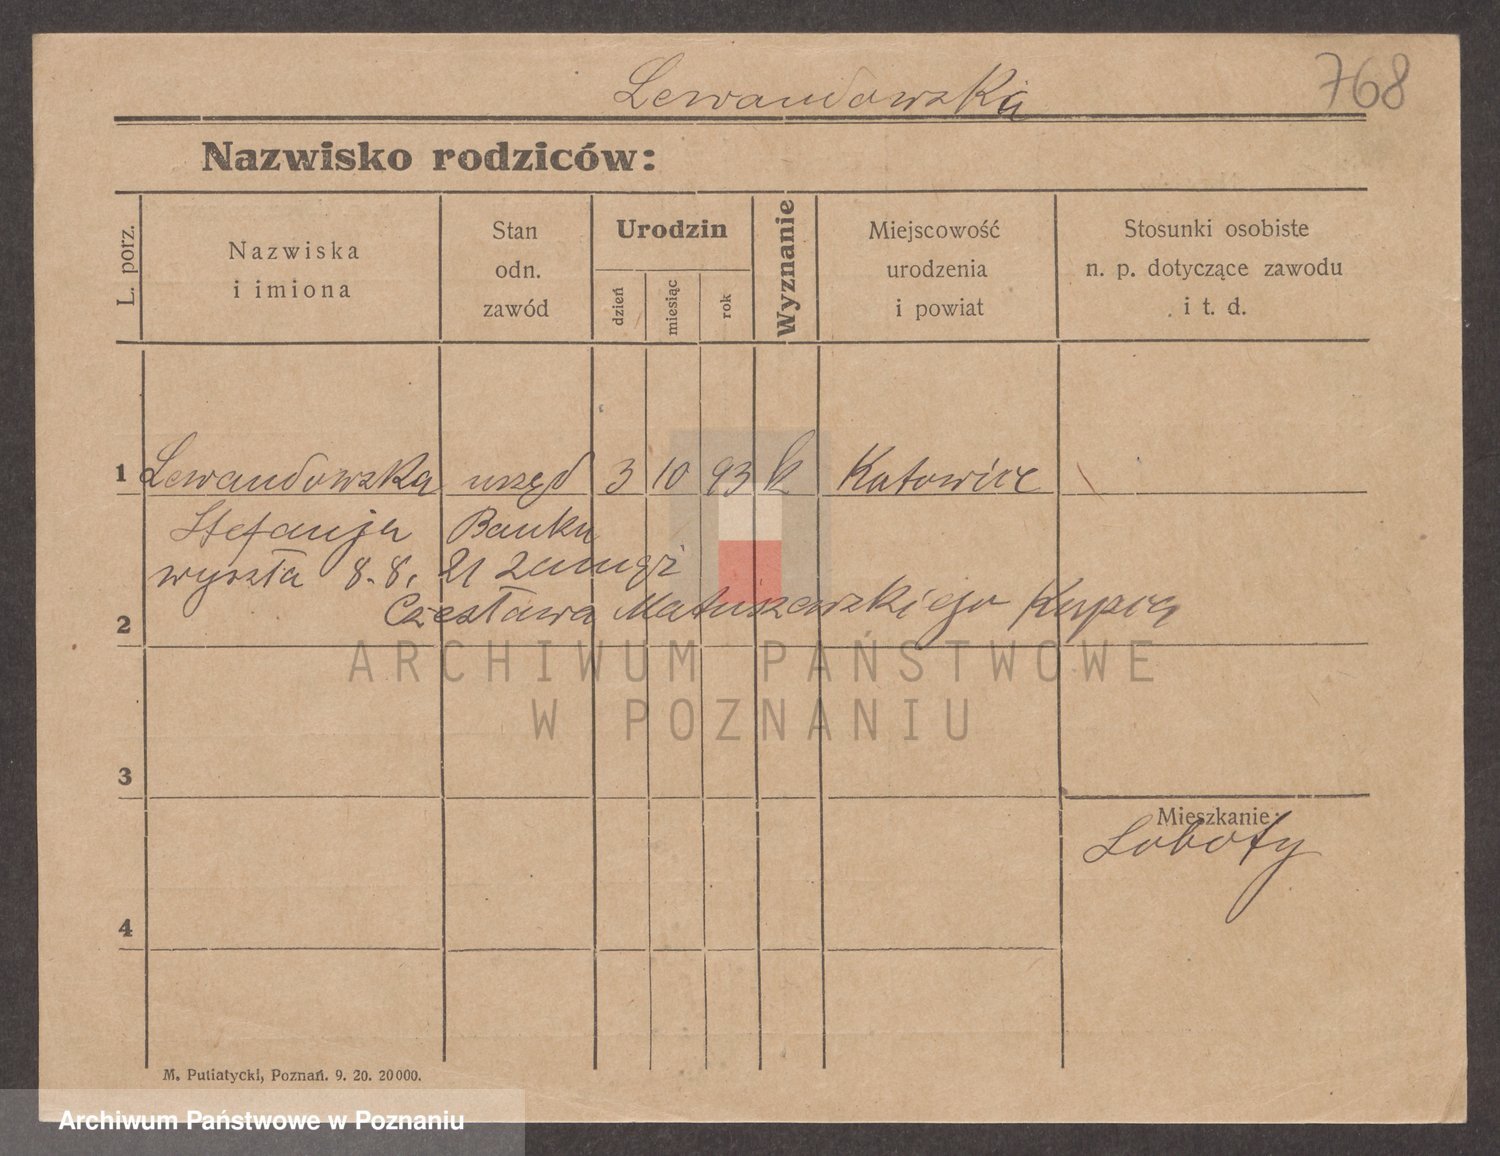 Lewandowska
768
Nazwisko rodziców:
L. porz.
Nazwiska
i imiona
Stan
odn.
zawód
Urodzin
dzień
miesiąc
rok
Wyznanie
Miejscowość
urodzenia
i powiat
Stosunki osobiste
n. p. dotyczące zawodu
i t. d.
1 Lewandowska urzęd 3 10 93 k Katowice
Stefanja Banku
wyszła 8.8. 21 zamąż
2 Czesława Matuszewskiego Kupca
ARCHIWUM PAŃSTWOWE
W POZNANIU
3
Mieszkanie:
4
M. Putiatycki, Poznań. 9. 20. 20000.
Archiwum Państwowe w Poznaniu